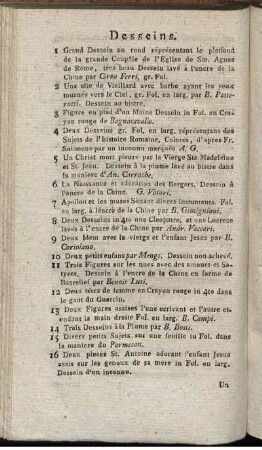 Desseins.
1 Grand Dessein en rond réprésentant le plafond
de la grande Coupôle de l'Eglise de Ste. Agnes
de Rome, très beau Dessein lavé à l'encre de la
Chine par Ciro Ferri, gr. Fol.
2 Une tête de Vieillard avec barbe ayant les yeux
tournés vers le Ciel, gr. Fol. en larg. par B. Passe-
rotti. Dessein au bistre.
3 Figure en pied d'un Moine Dessein in Fol. en Cra-
yon rouge de Bagnacavallo.
4 Deux Desseins gr. Fol. en larg. réprésentans des
Sujets de l'histoire Romaine, Coloriés, d'apres Fr.
Salimene par un inconnu marqués A. G.
5 Un Christ mort pleuré par la Vierge Ste Madeleine
et St. Jean. Dessein à la plume lavé au bistre dans
la maniere d'An. Carrache.
6 La Naissance et adoration des Bergers, Dessein à
l'encre de la Chine. G. Vasari.
7 Apollon et les muses Sonant divers instruments. Fol.
en larg. à l'encre de la Chine par B. Gimigniani.
8 Deux Desseins in 4to une Cleopatre, et une Lucrece
lavés à l'encre de la Chine par Andr. Vaccari.
9 Deux Idem avec la vierge et l'enfant Jesus par B.
Coriolano.
10 Deux petits enfans par Mengs. Dessein non achevé.
11 Trois Figures sur les nues avec des amours et Sa-
tyres, Dessein à l'encre de la Chine en forme de
Basrelief par Benoit Luti,
12 Deux têtes de femme en Crayon rouge in 4to dans
le gout du Guercin.
13 Deux Figures assises l'une ecrivant et l'autre et-
endant la main droite Fol. en larg. par B. Campi.
14 Trois Desseins à la Plume par B. Bossi.
15 Divers petits Sujets, sur une feuille in Fol. dans
la maniere du Parmesan.
16 Deux pieces St. Antoine adorant l'enfant Jesus
assis sur les genoux de sa mere in Fol. en larg.
Dessein d'un inconnu.
Un